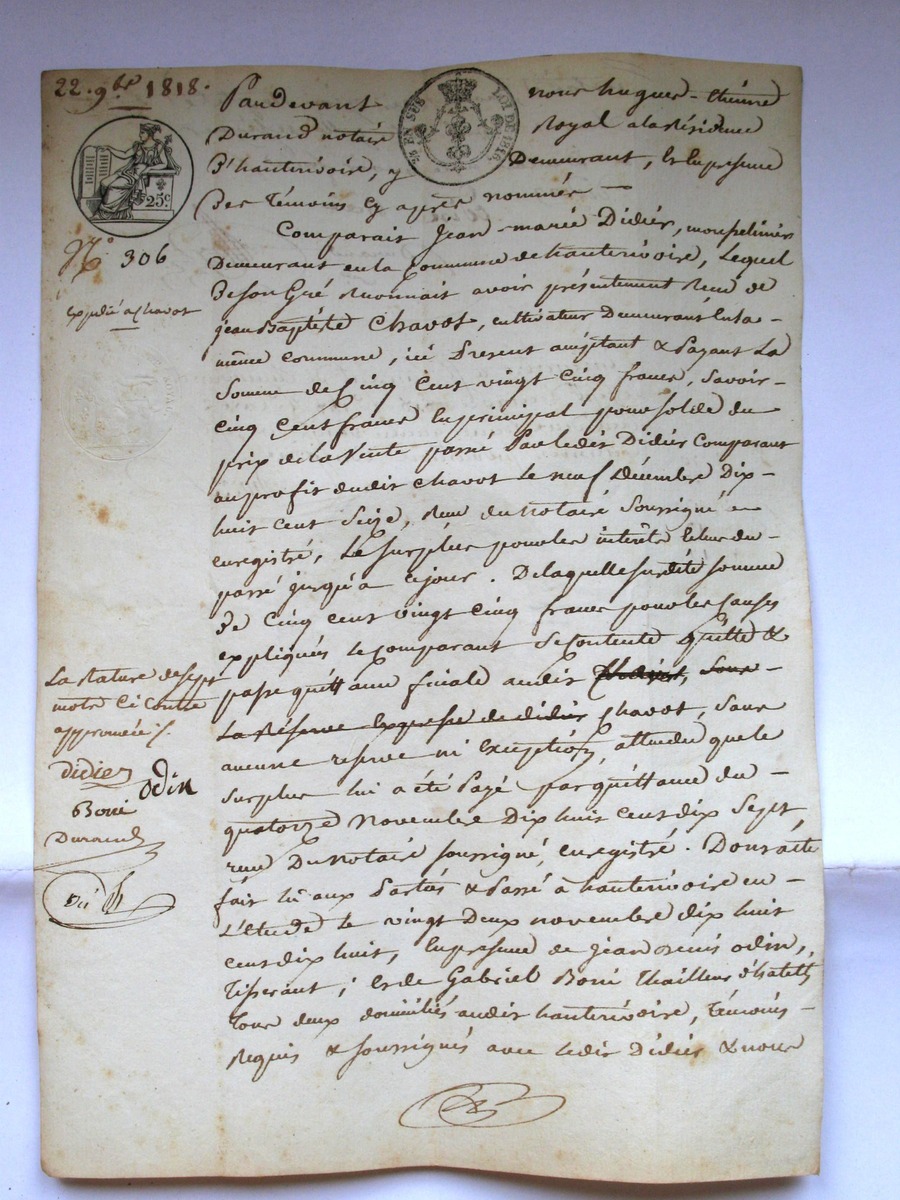 22. 9bre 1818.
25c
EN SUS LOI DE 1816
No 306
expédié a Chavot
Pardevant nous hugues-étienne
Durand notaire Royal a la Résidence
D'hauterivoire, y Demeurant, En présence
Des témoins cy après nommés —
Comparait Jean-marie Didier,
Demeurant en la Commune de hauterivoire, Lequel
De son Gré Reconnait avoir présentement Reçu de
jean Baptiste Chavot, cultivateur Demeurant En la -
même Commune, ici Present acceptant & Payant La
Somme de Cinq Cent vingt cinq francs, Savoir -
Cinq Cent francs En principal pour solde du
prix de la Vente passé Par ledit Didier Comparant
au profit dudit Chavot le neuf Décembre Dix-
huit cent Seize, Reçu du Notaire Soussigné
enregistré, Le Surplus pour les intérêts
passé jusqu'a ce jour. De laquelle susdite somme
De Cinq cent vingt cinq francs pour les causes
expliqués le Comparant Se Contente quitte &
passe quittance finale audit Sous
La Réserve Expresse de didier Chavot, Sans
aucune reserve ni Exception, attendu que le
Surplus lui a été Payé par quittance du -
quatorze Novembre Dix huit Cent dix Sept,
reçu Du Notaire soussigné, enregistré. Dont acte
fait lu aux Parties & Passé à hauterivoire en -
L'étude le vingt Deux novembre dix huit
cent dix huit, En présence de jean denis odin,
tisserant, et de Gabriel Boni thailleur d'habits,
tous deux domiciliés audit hauterivoire, témoins -
Requis & soussignés avec ledit Didier & nous
La rature de sept
mots Ci Contre
approuvée /.
Didier
odin
Boni
Durand